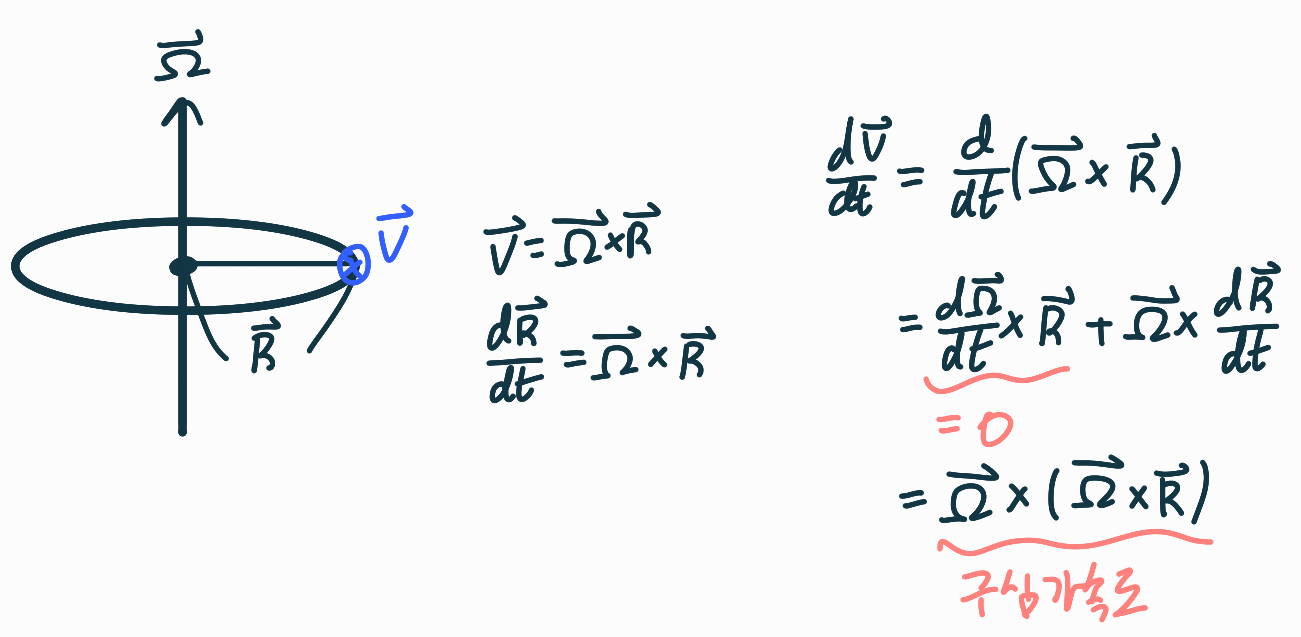 Ω⃗
V⃗
R⃗
V⃗ = Ω⃗ × R⃗
dR⃗/dt = Ω⃗ × R⃗
dV⃗/dt = d/dt (Ω⃗ × R⃗)
= dΩ⃗/dt × R⃗ + Ω⃗ × dR⃗/dt
= 0
= Ω⃗ × (Ω⃗ × R⃗)
구심가속도